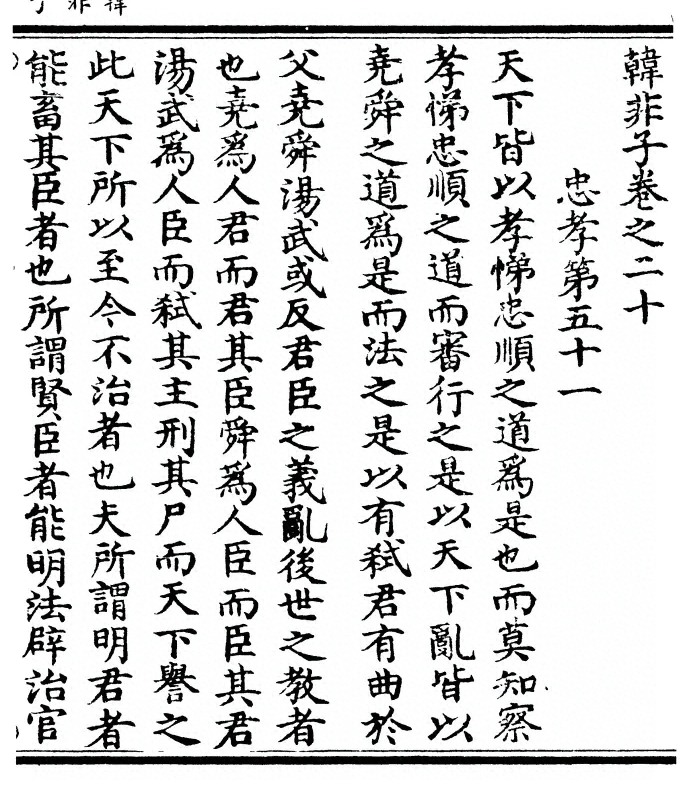 韓非子卷之二十
忠孝第五十一
天下皆以孝悌忠順之道爲是也而莫知察
孝悌忠順之道而審行之是以天下亂皆以
堯舜之道爲是而法之是以有弑君有曲於
父堯舜湯武或反君臣之義亂後世之教者
也堯爲人君而君其臣舜爲人臣而臣其君
湯武爲人臣而弑其主刑其尸而天下譽之
此天下所以至今不治者也夫所謂明君者
能畜其臣者也所謂賢臣者能明法辟治官